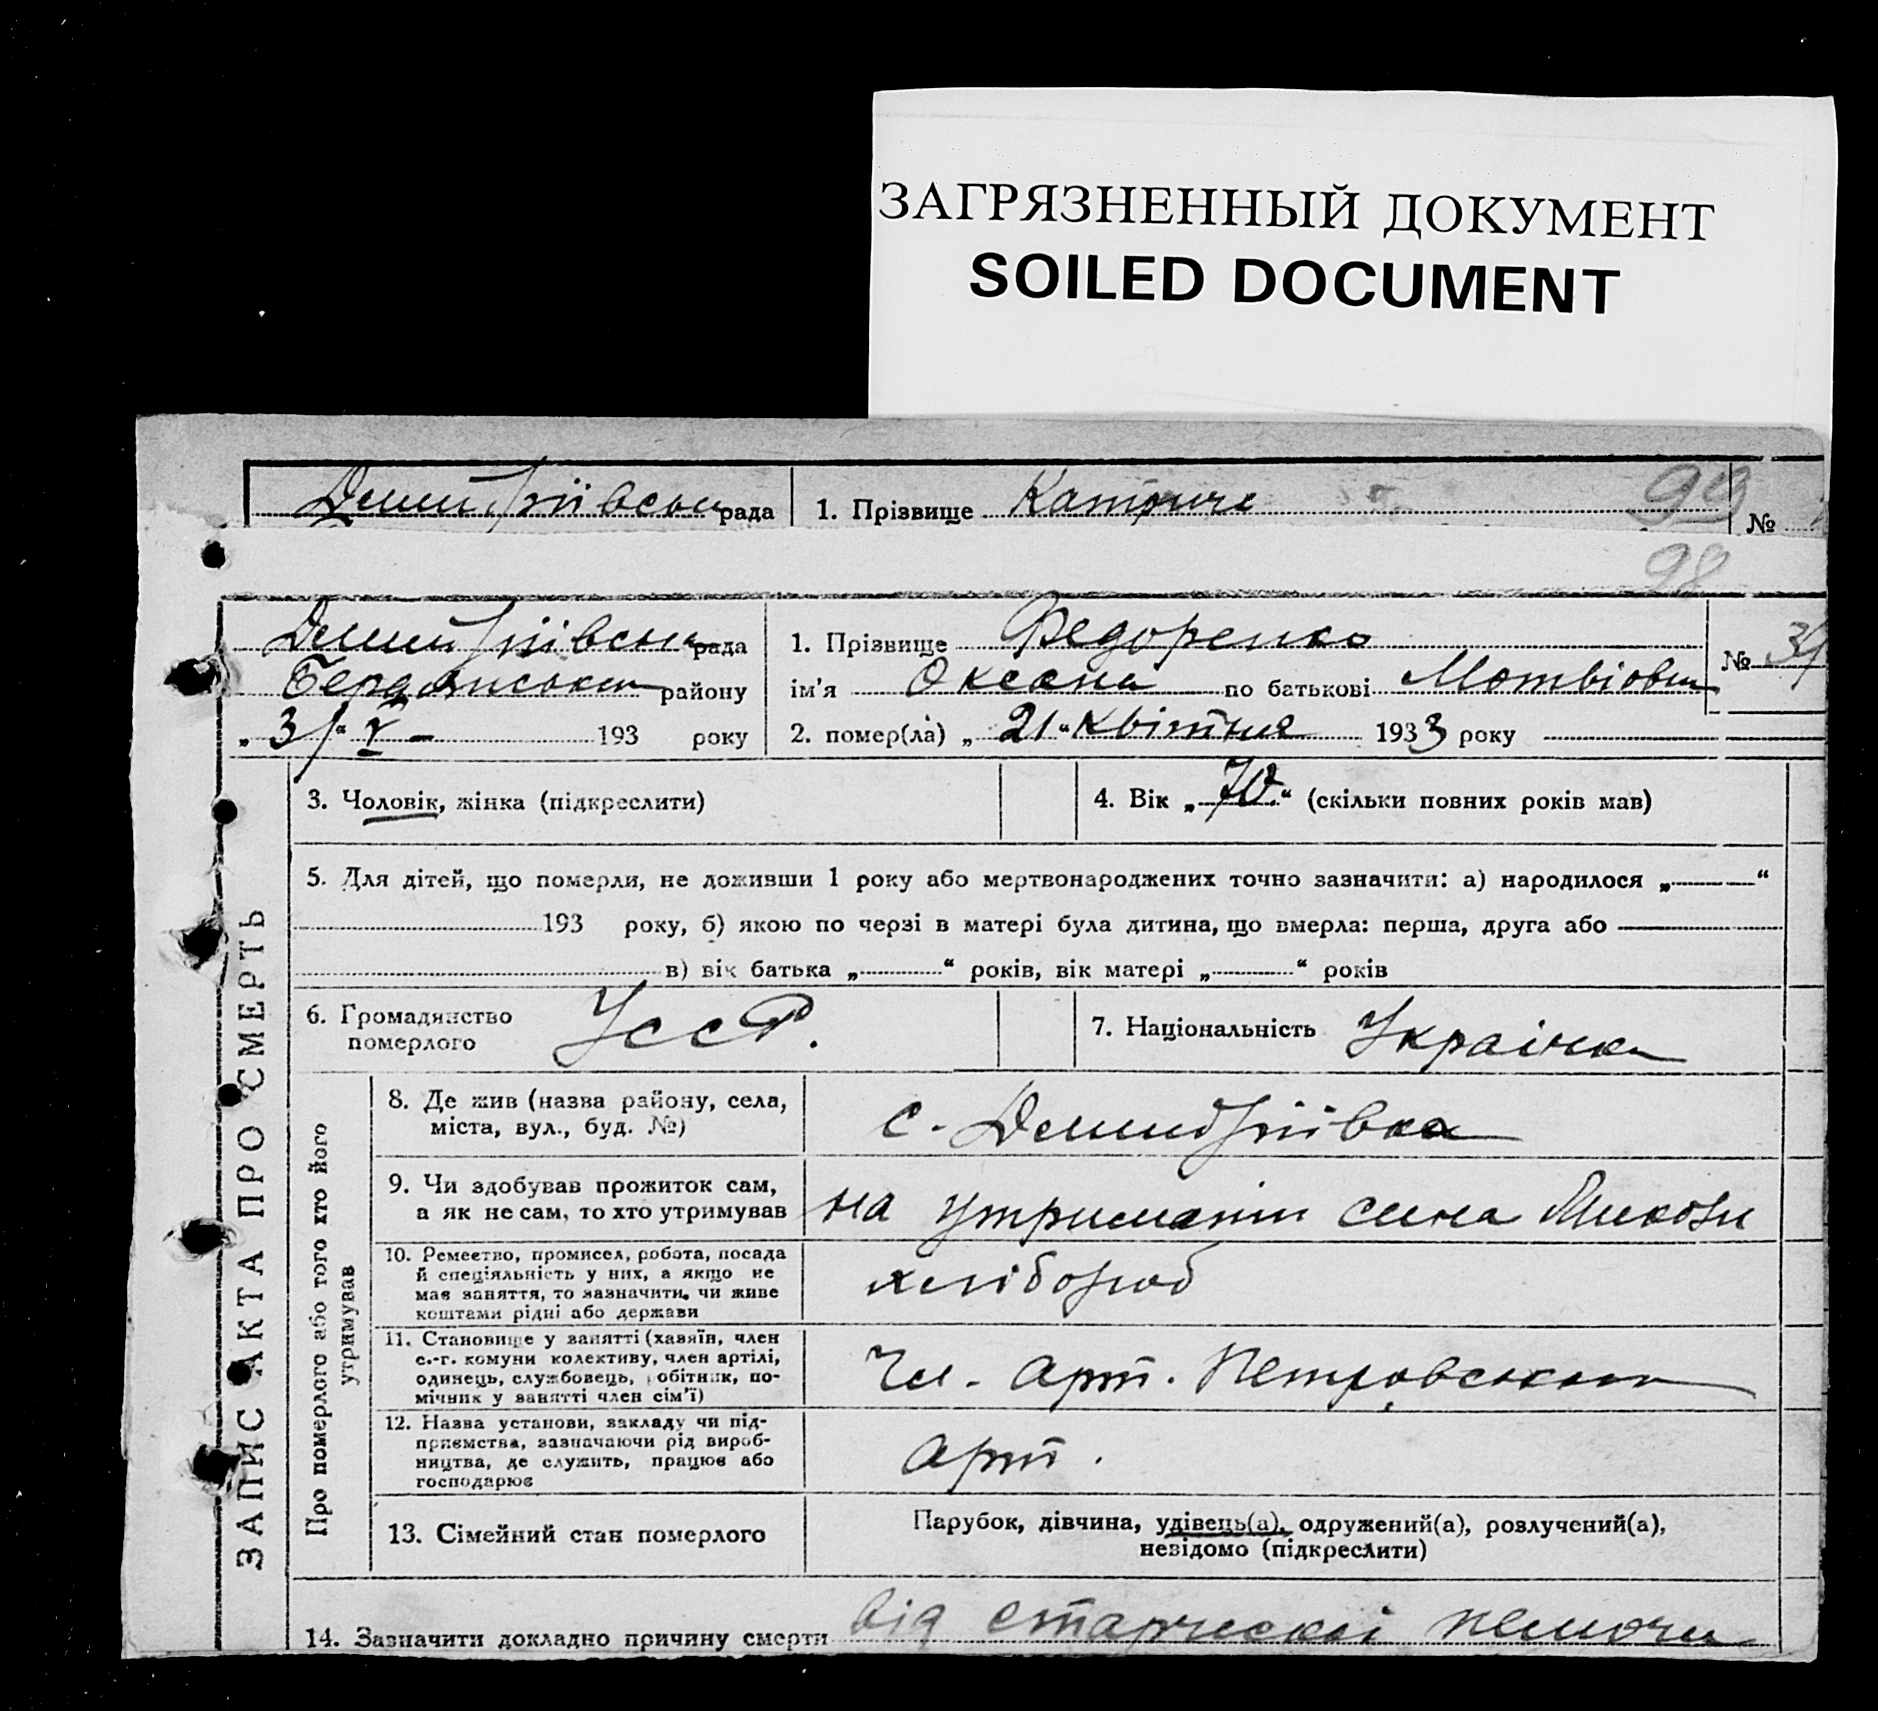 ЗАГРЯЗНЕННЫЙ ДОКУМЕНТ
SOILED DOCUMENT
рада 1. Прізвище 99 №
98
рада 1. Прізвище Федоренко № 31
Бердянськ району ім'я Оксана по батькові Мотвіовна
„31“ V – 193 року 2. помер(ла) „21“ Квітня 1933 року
3. Чоловік, жінка (підкреслити) 4. Вік „70“ (скільки повних років мав)
5. Для дітей, що померли, не доживши 1 року або мертвонароджених точно зазначити: а) народилося „——“
193 року, б) якою по черзі в матері була дитина, що вмерла: перша, друга або
в) вік батька „......“ років, вік матері „......“ років
6. Громадянство
померлого УССР. 7. Національність Українка
ЗАПИС АКТА ПРО СМЕРТЬ
Про померлого або того хто його
утримував
8. Де жив (назва району, села,
міста, вул., буд. №) с.
9. Чи здобував прожиток сам,
а як не сам, то хто утримував на утриманні сина Миколи
10. Ремество, промисел, робота, посада
й спеціяльність у них, а якщо не
має заняття, то зазначити, чи живе
коштами рідні або держави хлібороб
11. Становище у занятті (хазяїн, член
с.-г. комуни колективу, член артілі,
одинець, службовець, робітник, по-
мічник у занятті член сім'ї) Чл. арт. Петровського
12. Назва установи, закладу чи під-
приємства, зазначаючи рід вироб-
ництва, де служить, працює або
господарює арт.
13. Сімейний стан померлого Парубок, дівчина, удівець(а), одружений(а), розлучений(а),
невідомо (підкреслити)
14. Зазначити докладно причину смерти від старческої немочи